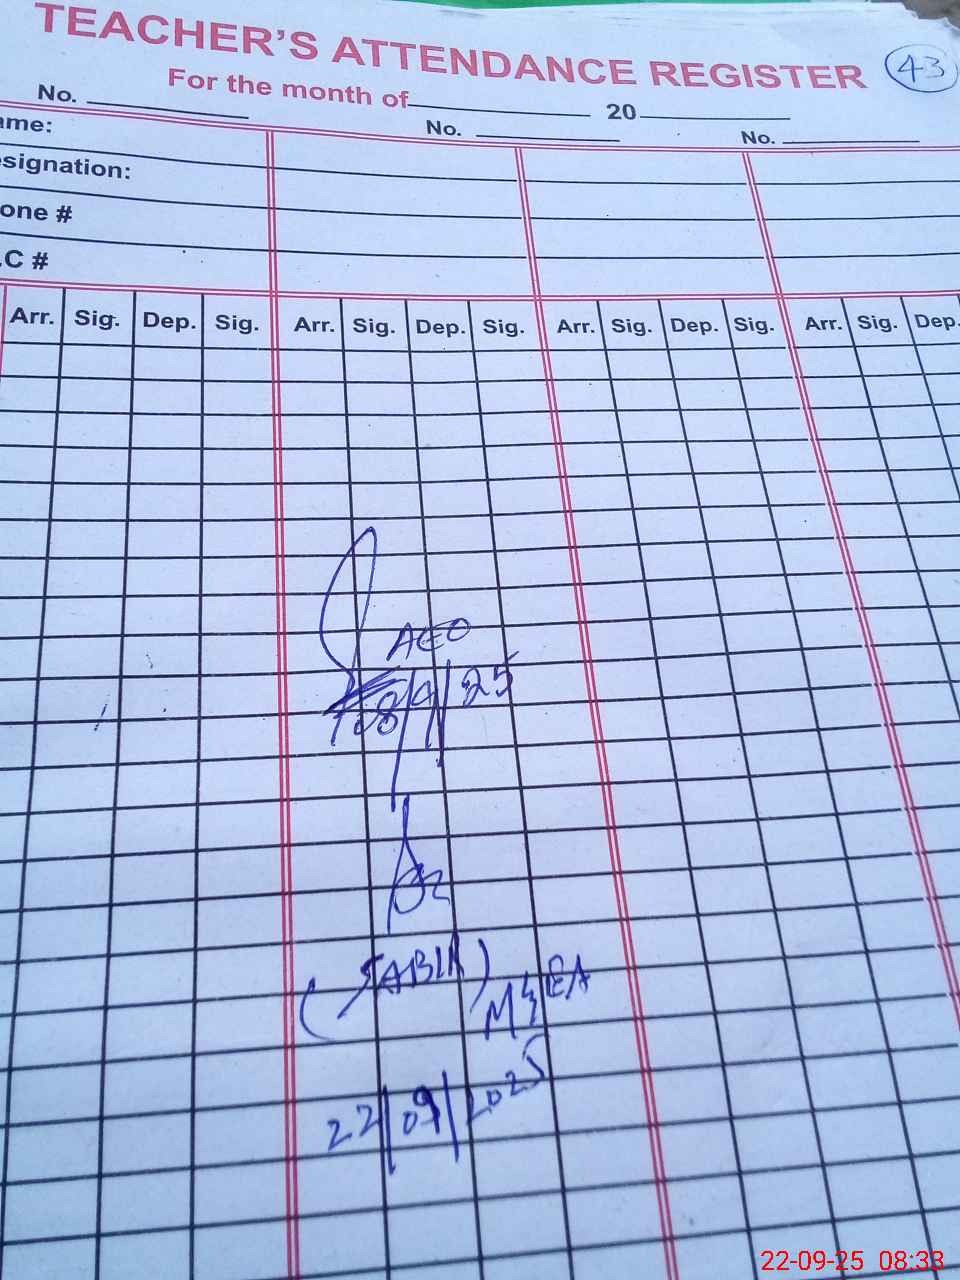 TEACHER'S ATTENDANCE REGISTER
43
For the month of 20
No. No. No.
ame:
signation:
one #
.C #
Arr. Sig. Dep. Sig. Arr. Sig. Dep. Sig. Arr. Sig. Dep. Sig. Arr. Sig. Dep.
AEO
08/9/25
M&EA
22/09/2025
22-09-25 08:33